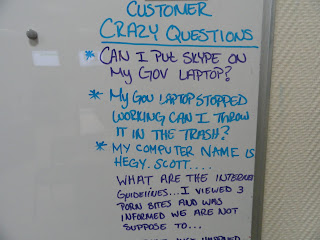 CUSTOMER
CRAZY QUESTIONS
* CAN I PUT SKYPE ON
MY GOV LAPTOP?
* MY GOV LAPTOP STOPPED
WORKING CAN I THROW
IT IN THE TRASH?
* MY COMPUTER NAME IS
HEGY. SCOTT....
WHAT ARE THE INTERNET
GUIDELINES...I VIEWED 3
PORN BITES AND WAS
INFORMED WE ARE NOT
SUPPOSE TO...